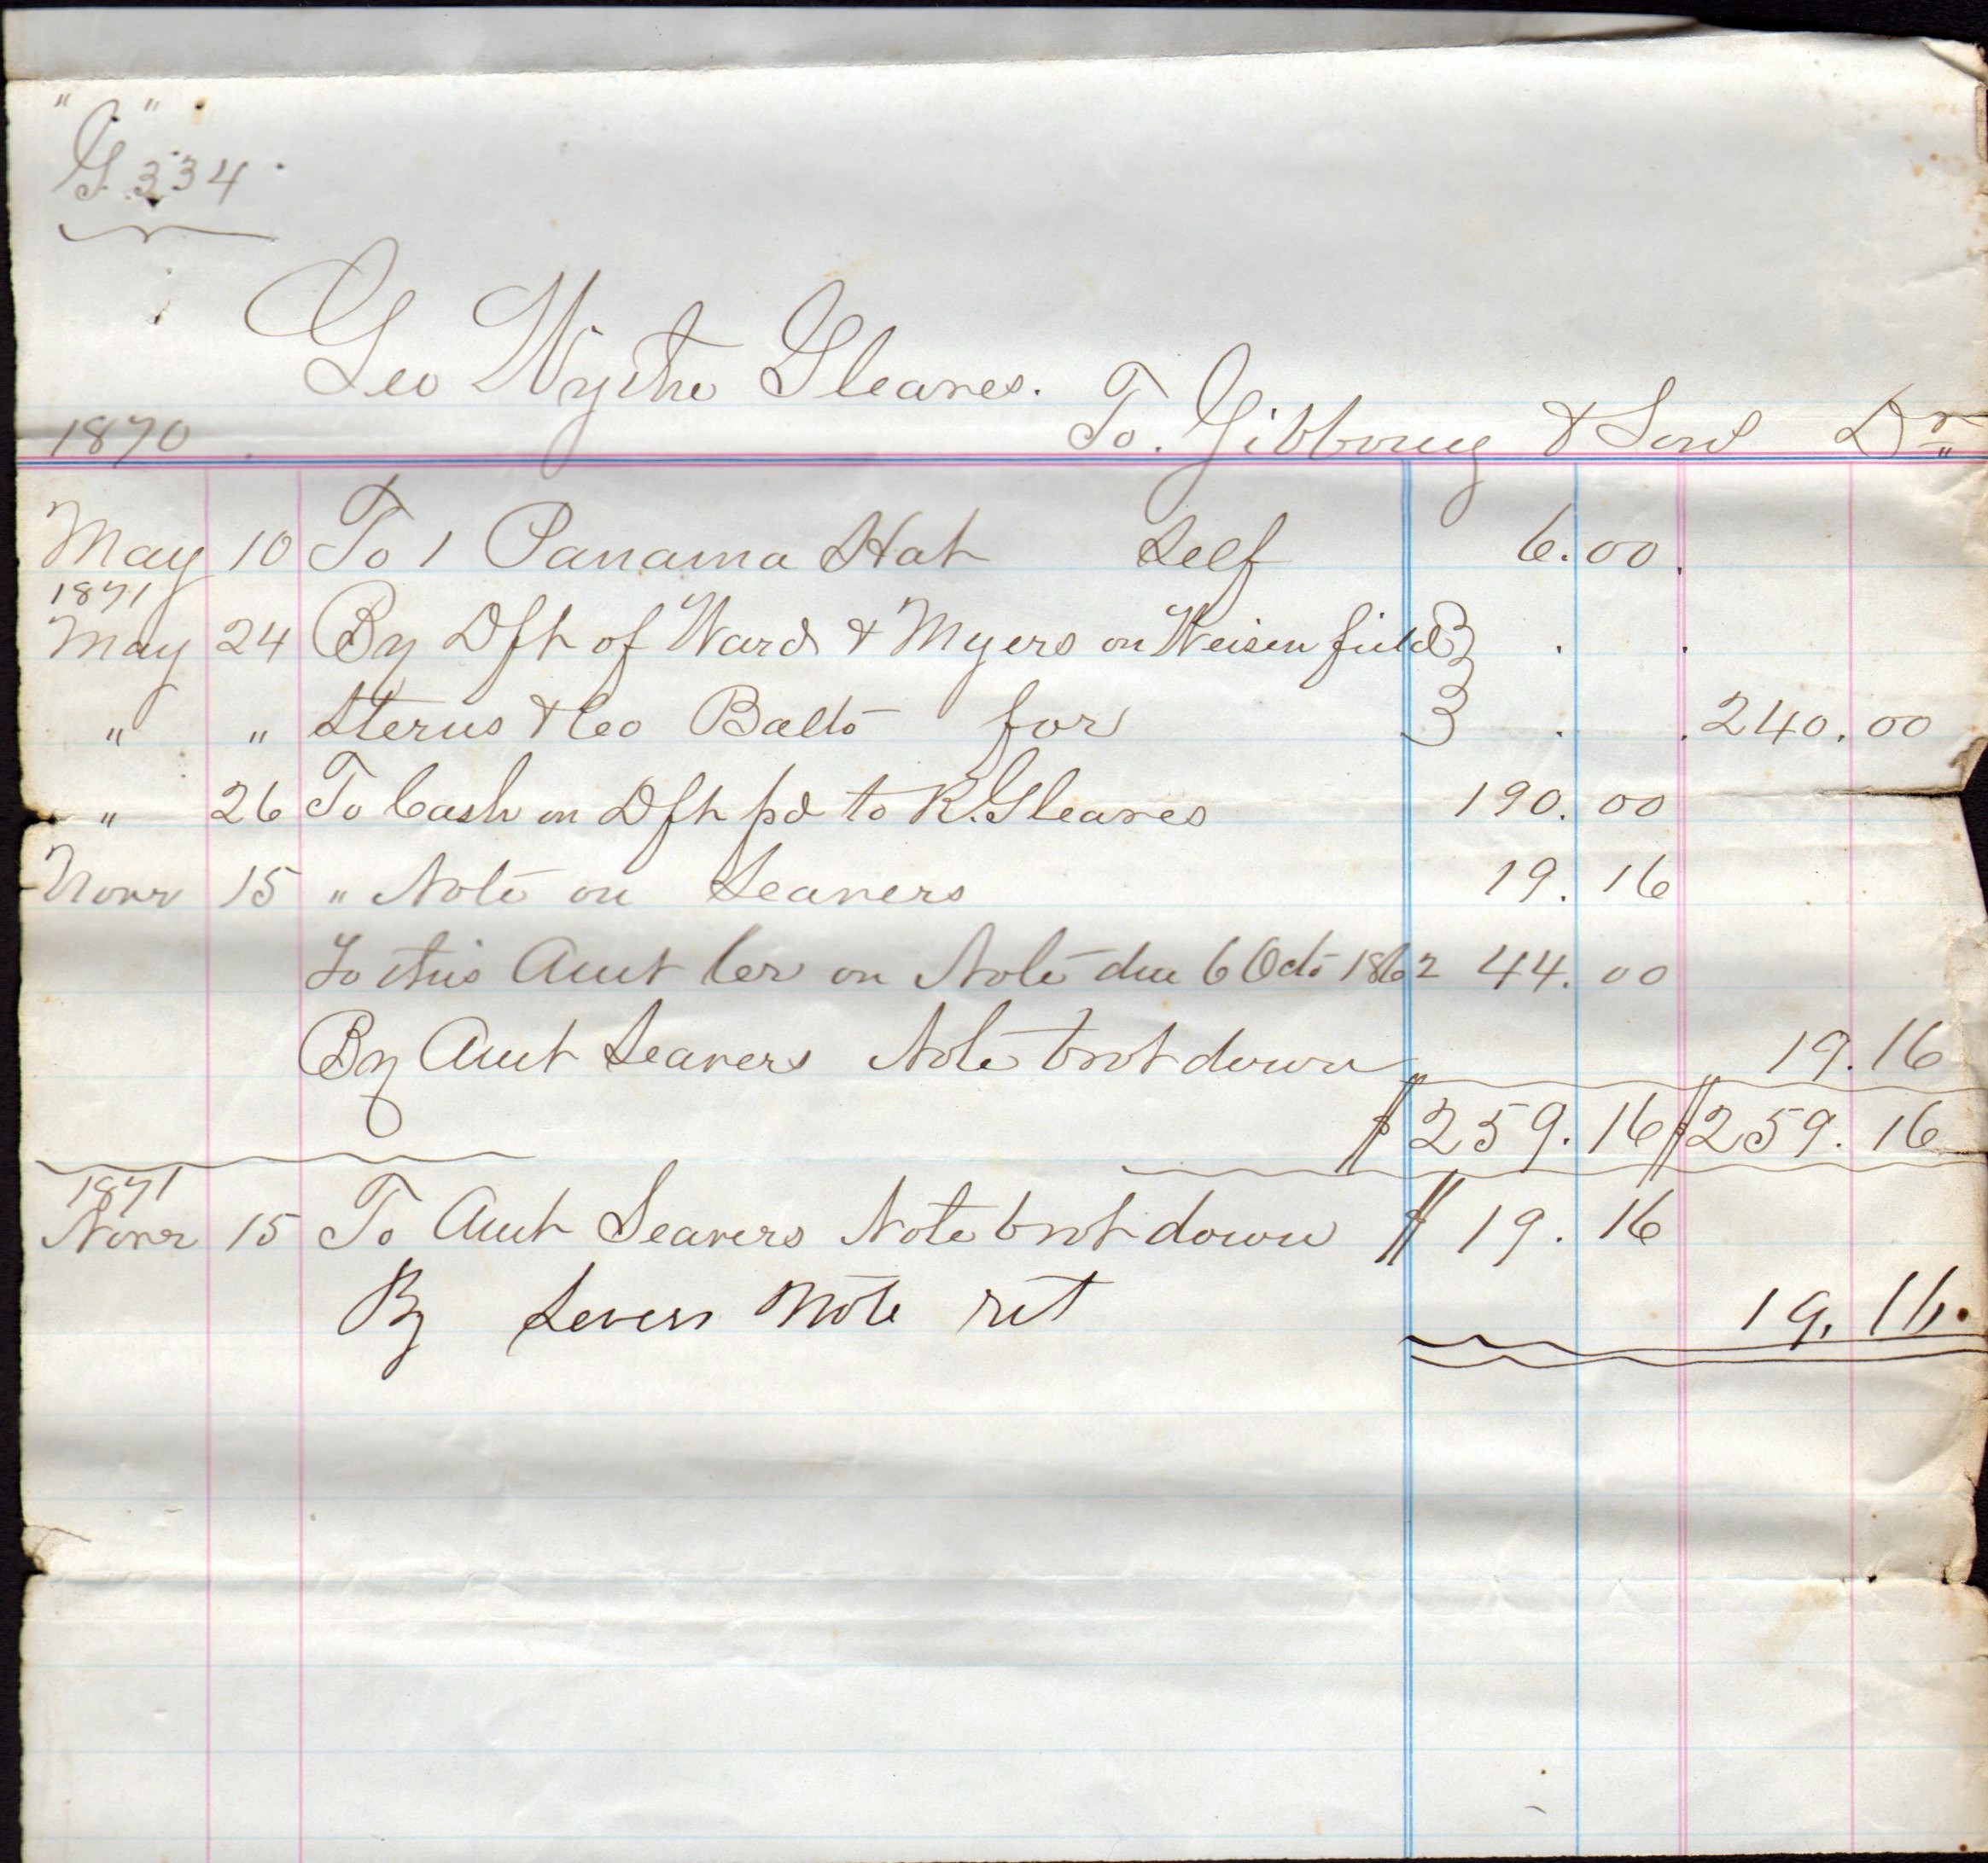 "G"
G. 334
Geo Wythe Gleaves.
1870 To. Gibboney & Son Dr
May 10 To 1 Panama Hat Self 6.00
1871
May 24 By Dft of Ward & Myers on Weisenfield
" " Sterns & Co Balto for 240.00
" 26 To Cash on Dft pd to R. Gleaves 190.00
Novr 15 " Note on Seavers 19.16
To this Amt Cer on Note due 6 Octo 1862 44.00
By Amt Seavers Note brot down 19.16
$259.16 $259.16
1871
Novr 15 To Amt Seavers Note brot down $19.16
By Severs Note ret 19.16.